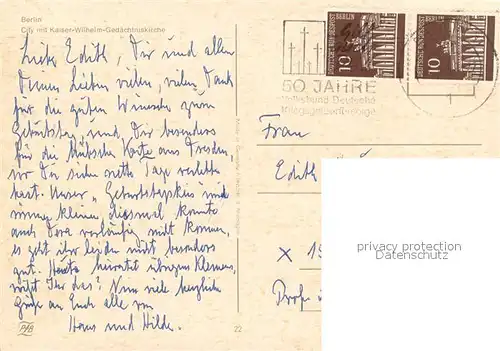 Berlin
City mit Kaiser-Wilhelm-Gedächtniskirche
Liebe Edith, Dir und allen
Deinen Lieben vielen, vielen Dank
für die guten Wünsche zum
Geburtstag und Dir besonders
für die hübsche Karte aus Dresden,
wo Du schöne nette Tage verlebt
hast. Unser "Geburtstagskreis" wird
immer kleiner, diesmal konnte
auch Dora vorläufig nicht kommen,
es geht ihr leider nicht besonders
gut. Heute heiratet übrigens Klemens,
wißt Ihr das? Nun viele herzliche
Grüße an Euch alle von
Hans und Hilde.
PHB
22
50 JAHRE
Volksbund Deutsche
Kriegsgräberfürsorge
DEUTSCHE BUNDESPOST
BERLIN
10
DEUTSCHE BUNDESPOST
BERLIN
10
1
Frau
Edith
X 19
Prof
privacy protection
oldthing.de